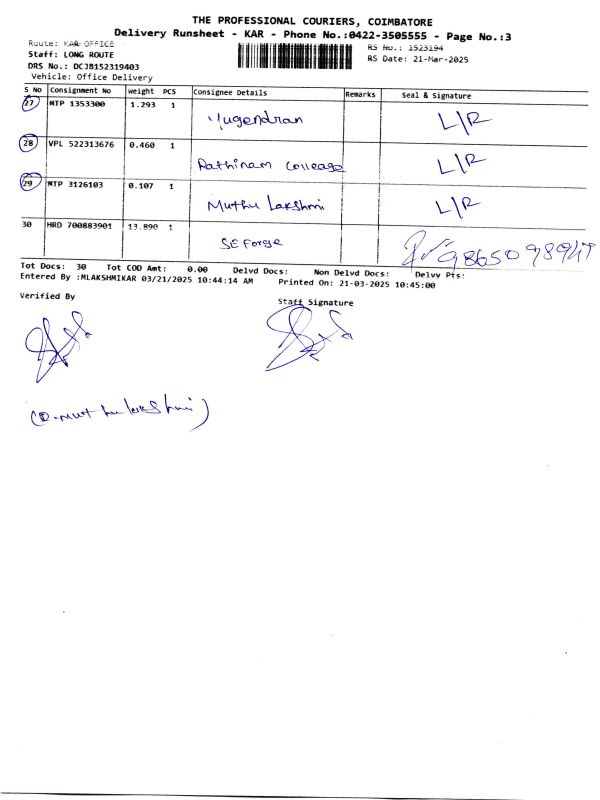 THE PROFESSIONAL COURIERS, COIMBATORE
Delivery Runsheet - KAR - Phone No.:0422-3505555 - Page No.:3
Route: KAR OFFICE
RS No.: 1523194
Staff: LONG ROUTE
RS Date: 21-Mar-2025
DRS No.: DCJB152319403
Vehicle: Office Delivery
S No Consignment No Weight PCS Consignee Details Remarks Seal & Signature
27 MTP 1353300 1.293 1 Yugendran L/R
28 VPL 522313676 0.460 1 Rathinam Colleage L/R
29 MTP 3126103 0.107 1 Muthu Lakshmi L/R
30 HRD 700883901 13.890 1 SE Forge
Tot Docs: 30 Tot COD Amt: 0.00 Delvd Docs: Non Delvd Docs: Delvy Pts:
Entered By :MLAKSHMIKAR 03/21/2025 10:44:14 AM Printed On: 21-03-2025 10:45:00
Verified By Staff Signature